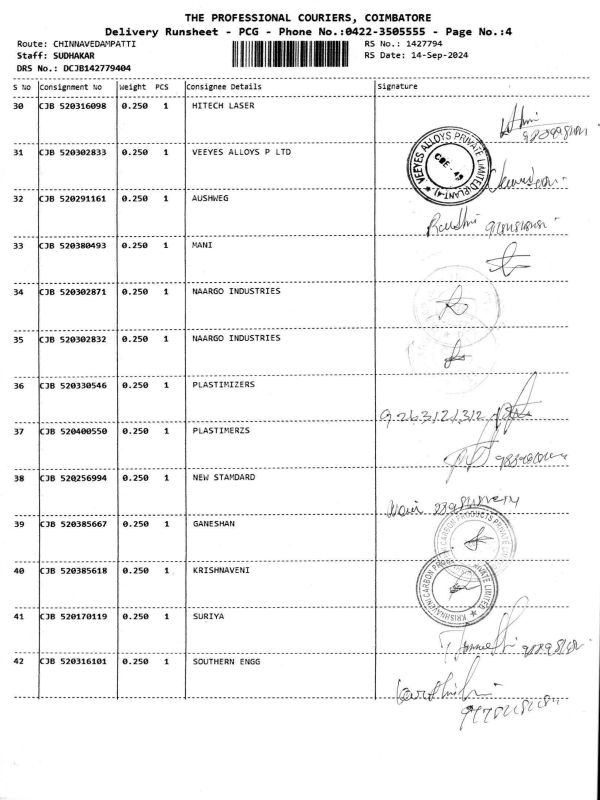 THE PROFESSIONAL COURIERS, COIMBATORE
Delivery Runsheet - PCG - Phone No.:0422-3505555 - Page No.:4
Route: CHINNAVEDAMPATTI RS No.: 1427794
Staff: SUDHAKAR RS Date: 14-Sep-2024
DRS No.: DCJB142779404
S No Consignment No Weight PCS Consignee Details Signature
30 CJB 520316098 0.250 1 HITECH LASER
31 CJB 520302833 0.250 1 VEEYES ALLOYS P LTD
VEEYES ALLOYS PRIVATE LIMITED (PLANT-4)
COE - 49
32 CJB 520291161 0.250 1 AUSHWEG
33 CJB 520380493 0.250 1 MANI
34 CJB 520302871 0.250 1 NAARGO INDUSTRIES
35 CJB 520302832 0.250 1 NAARGO INDUSTRIES
36 CJB 520330546 0.250 1 PLASTIMIZERS
9263121312
37 CJB 520400550 0.250 1 PLASTIMERZS
38 CJB 520256994 0.250 1 NEW STAMDARD
39 CJB 520385667 0.250 1 GANESHAN
40 CJB 520385618 0.250 1 KRISHNAVENI
KRISHNAVENI CARBON PRODUCTS PRIVATE LIMITED
41 CJB 520170119 0.250 1 SURIYA
42 CJB 520316101 0.250 1 SOUTHERN ENGG